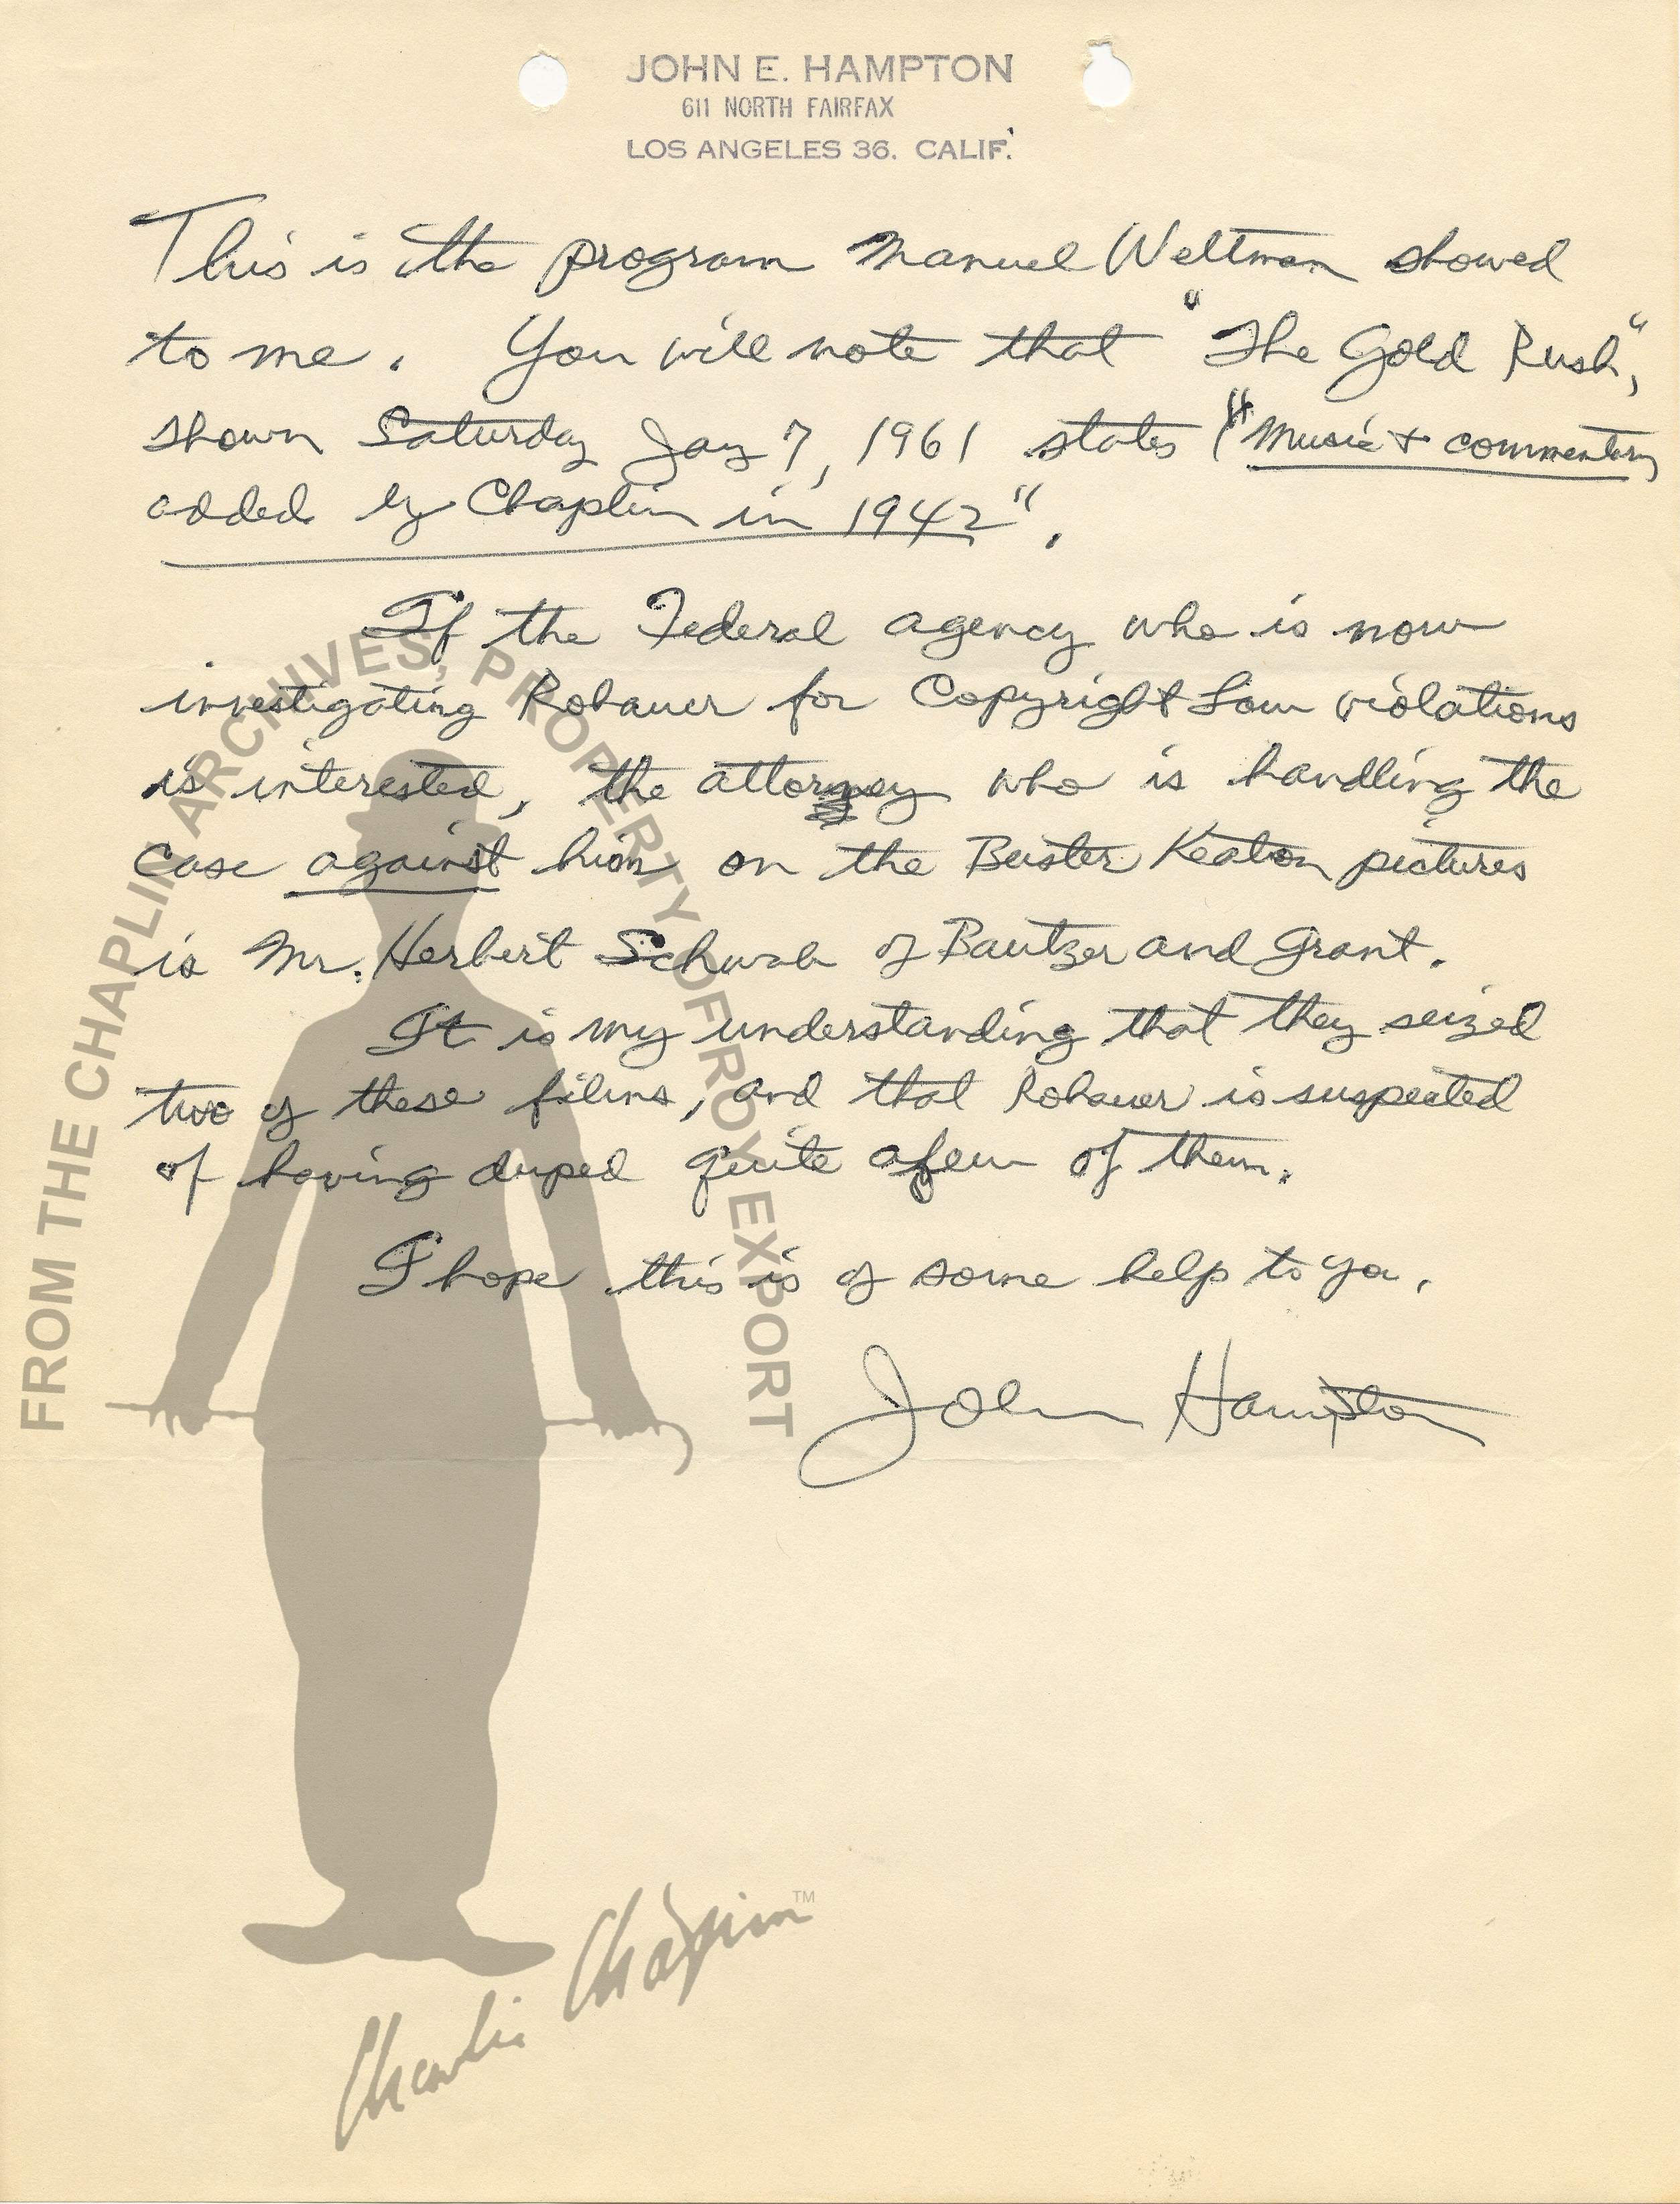 JOHN E. HAMPTON
611 NORTH FAIRFAX
LOS ANGELES 36. CALIF.
This is the program Manuel Weltman showed
to me. You will note that "The Gold Rush",
shown Saturday Jan 7, 1961 states ("Music & commentary
added by Chaplin in 1942".
If the Federal agency who is now
investigating Rohauer for Copyright Law violations
is interested, the attorney who is handling the
case against him on the Buster Keaton pictures
is Mr. Herbert Schwab of Bautzer and Grant.
It is my understanding that they seized
two of these films, and that Rohauer is suspected
of having duped quite a few of them.
I hope this is of some help to you.
John Hampton
FROM THE CHAPLIN ARCHIVES, PROPERTY OF ROY EXPORT
Charlie Chaplin TM